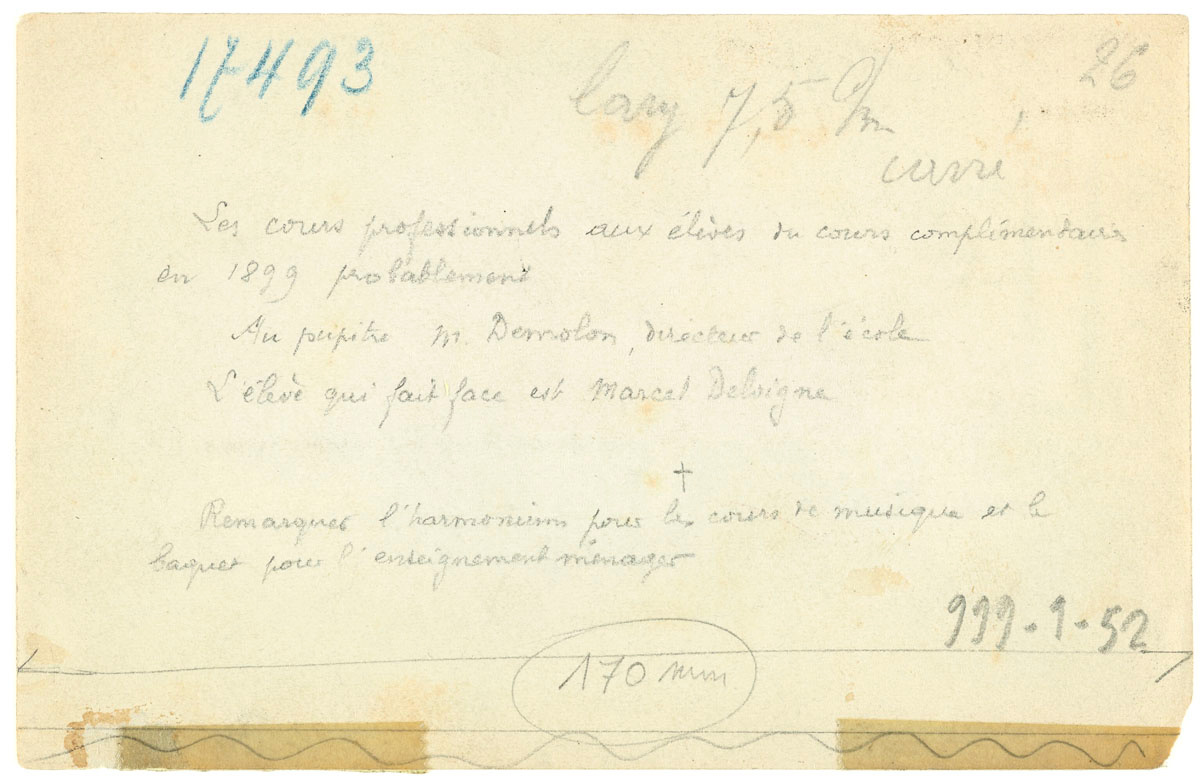 17493
26
larg 7,5 c/m
carré
Les cours professionnels aux élèves du cours complémentaire
en 1899 probablement
Au pupitre M. Demolon, directeur de l'école
L'élève qui fait face est Marcel Deloigne
Remarquer l'harmonium pour les cours de musique et le
baquet pour l'enseignement ménager
999-1-52
170 mm